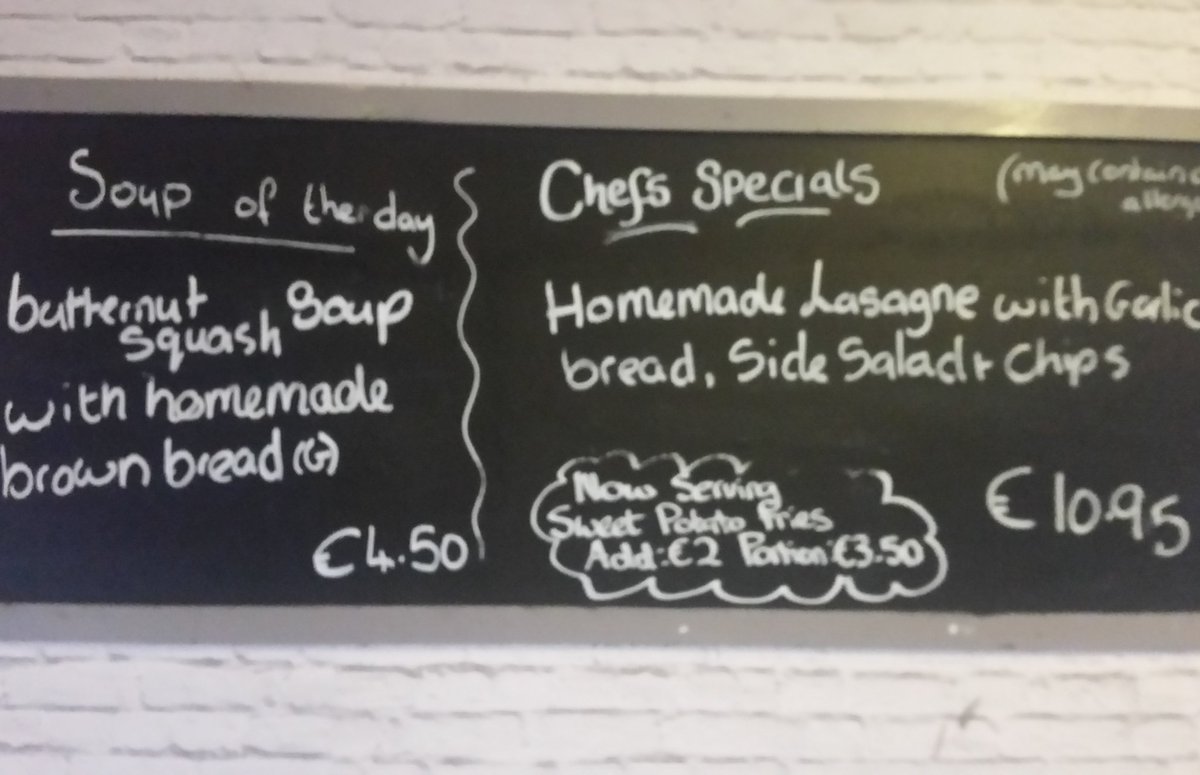 Soup of the day
butternut squash Soup
with homemade
brown bread (G)
€4.50
Chefs Specials
(may contain
Homemade Lasagne with Garlic
bread, Side Salad + Chips
€10.95
Now Serving
Sweet Potato Fries
Add: €2 Portion: €3.50